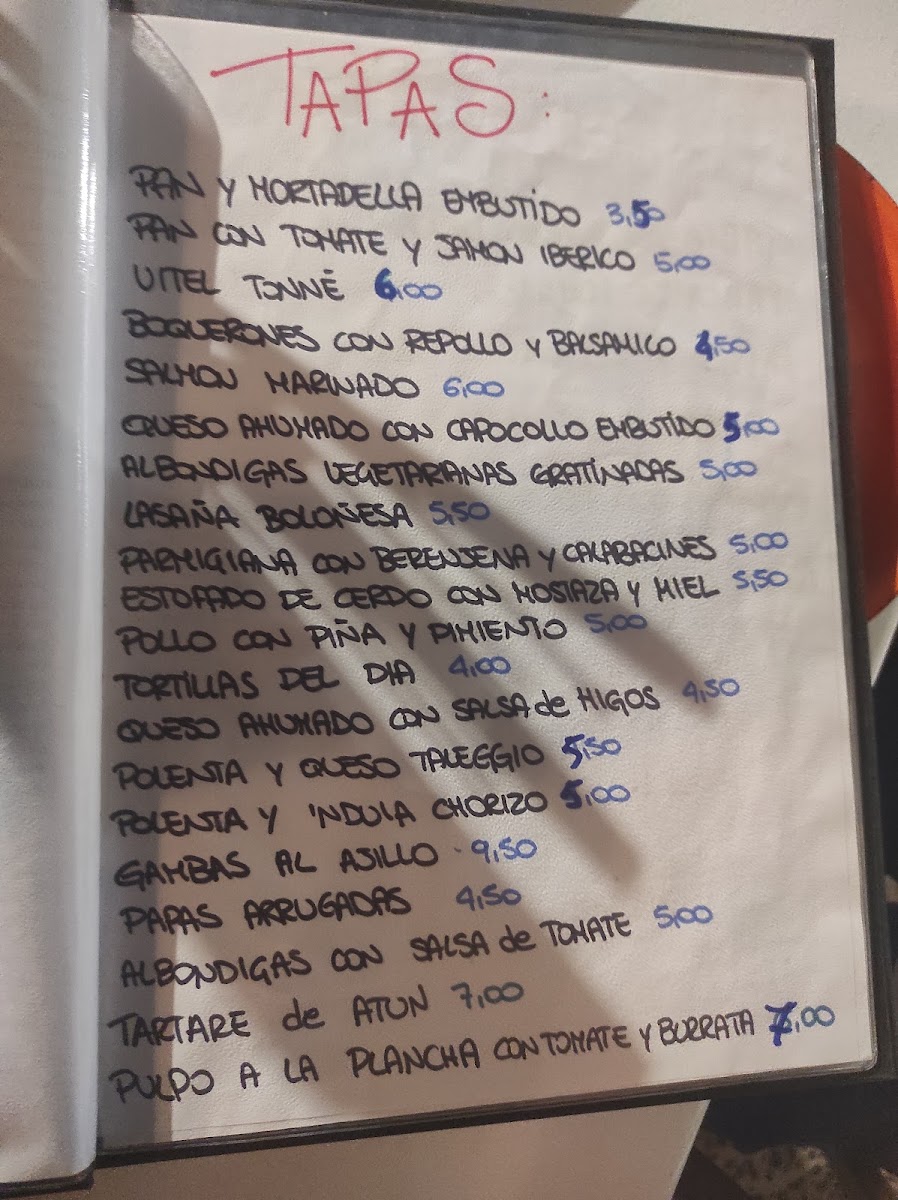 TAPAS:
PAN Y MORTADELLA EMBUTIDO 3,50
PAN CON TOMATE Y JAMON IBERICO 5,00
VITEL TONNÉ 6,00
BOQUERONES CON REPOLLO Y BALSAMICO 4,50
SALMON MARINADO 6,00
QUESO AHUMADO CON CAPOCOLLO EMBUTIDO 5,00
ALBONDIGAS VEGETARIANAS GRATINADAS 5,00
LASAÑA BOLOÑESA 5,50
PARMIGIANA CON BERENJENA Y CALABACINES 5,00
ESTOFADO DE CERDO CON MOSTAZA Y MIEL 5,50
POLLO CON PIÑA Y PIMIENTO 5,00
TORTILLAS DEL DIA 4,00
QUESO AHUMADO CON SALSA de HIGOS 4,50
POLENTA Y QUESO TALEGGIO 5,50
POLENTA Y 'NDUJA CHORIZO 5,00
GAMBAS AL AJILLO 9,50
PAPAS ARRUGADAS 4,50
ALBONDIGAS CON SALSA de TOMATE 5,00
TARTARE de ATUN 7,00
PULPO A LA PLANCHA CON TOMATE Y BURRATA 7,00